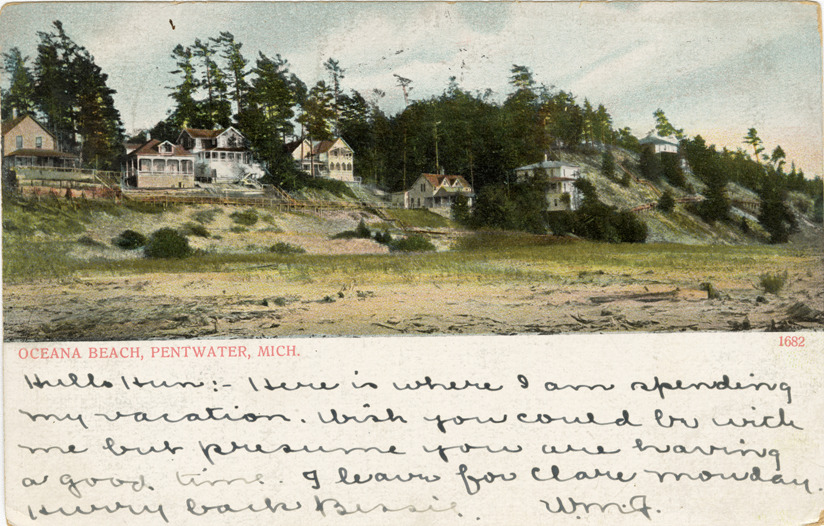 OCEANA BEACH, PENTWATER, MICH.
1682
Hullo Hun:- Here is where I am spending
my vacation. Wish you could be with
me but presume you are having
a good time. I leave for Clare monday.
Hurry back Bessie. Wm.J.